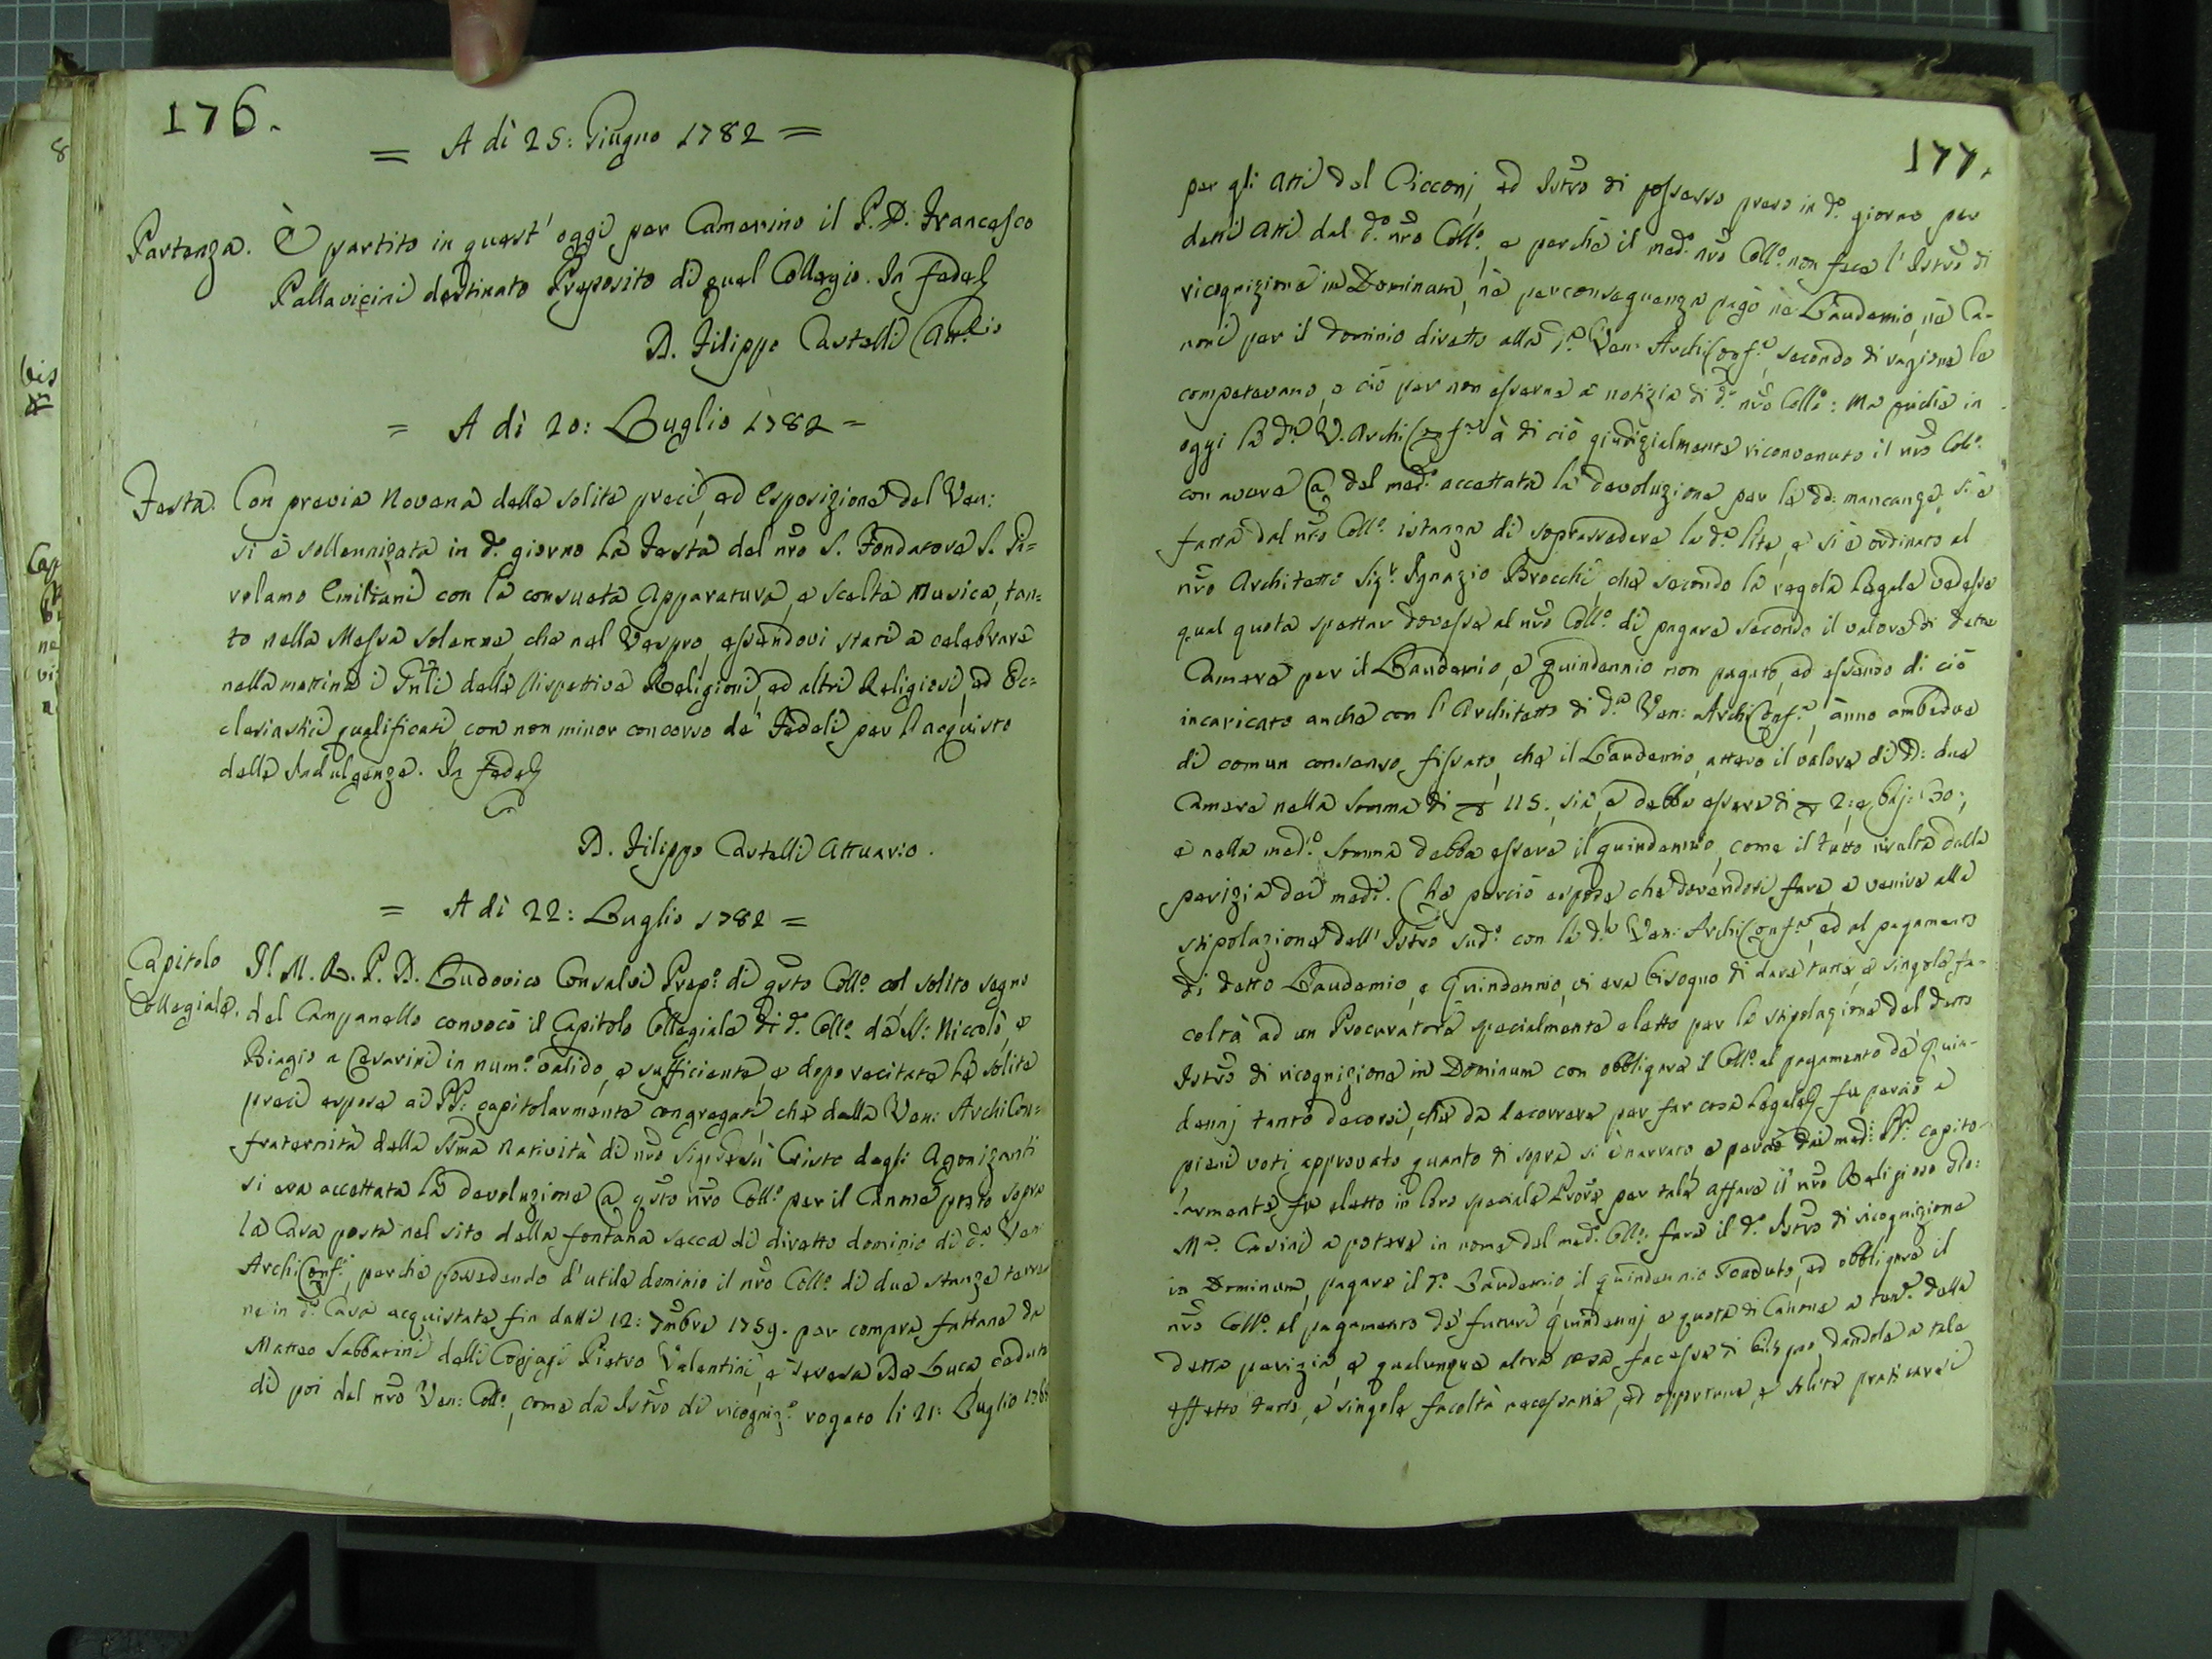 176.
= A dì 25: Giugno 1782 =
Partenza. È partito in quest' oggi per Camerino il P. D. Francesco
Pallavicini destinato Preposito di quel Collegio. In fede
D. Filippo Castelli Att.rio
= A dì 20: Luglio 1782 =
Festa. Con previa Novena delle solite preci, ed Esposizione del Ven:
si è sollennizata in d.o giorno la Festa del nro S. Fondatore S. Gi=
rolamo Emiliani con la consueta Apparatura, e scelta Musica, tan=
to nella Messa solenne, che nel Vespro, essendovi stati a celebrare
nella mattina i delle rispettive Religioni, ed altri Religiosi, ed Ec=
clesiastici qualificati, con non minor concorso de' Fedeli per l'acquisto
delle Indulgenze. In fede
D. Filippo Castelli Attuario.
= A dì 22: Luglio 1782 =
Capitolo
Collegiale.
Il M. R. P. D. Ludovico Consalvi Prep.o di qsto Coll.o col solito segno
del Campanello convocò il Capitolo Collegiale di d.o Coll.o de SS: Niccolò, e
Biagio a Cesarini in num.o valido, e sufficiente, e dopo recitate le solite
preci espose ai PP: capitolarmente congregati, che dalla Ven: ArchiCon=
fraternità della Ssma Natività di nro Sig: Gesù Cristo degli Agonizanti
si era accettata la devoluzione @ qsto nro Coll.o per il Canone posto sopra
la Casa posta nel sito della fontana secca di diretto dominio di d.a Ven
ArchiConf.a, perchè possedendo l'utile dominio il nro Coll.o di due stanze terre
ne in d.a Casa acquistate fin dalli 12: 7mbre 1759. per compra fattane da
Matteo Sabbatini delli Conjugi Pietro Valentini, e Teresa De Luca, cadute
di poi del nro Ven: Coll.o, come da Istro di ricogniz.e rogato li 21: Luglio
177.
per gli Atti del Cicconj, ed Istro di possesso preso in d.o giorno per
detti Atti dal d.o nro Coll.o, e perchè il med.o nro Coll.o non fece l'Istro di
ricognizione in Dominam, nè per conseguenza pagò nè Laudemio, nè Ca-
noni per il dominio diretto alla d.a Ven: ArchiConf.a, secondo di ragione le
competevano, e ciò per non esserne a notizia di d.o nro Coll.o: Ma giachè in
oggi la d.a V. ArchiConf.a à di ciò giudizialmente riconvenuto il nro Coll.o
con avere @ del med.o accettata la devoluzione per le dd: mancanze, si è
fatta dal nro Coll.o istanza di soprassedere la d.a lite, e si è ordinato al
nro Architetto Sig.r Ignazio Brocchi, che secondo la regola legale vedesse
qual quota spettar dovesse al nro Coll.o di pagare secondo il valore di dette
Camere per il Laudemio, e quindennio non pagato, ed essendo di ciò
incaricato anche con l'Architetto di d.a Ven: ArchiConf.a, ànno ambedue
di comun consenso fissato, che il Laudemio, atteso il valore di dd: due
Camere nella somma di 115:, sia, e debba essere di 2: e baj: 30:,
e nella med.a somma debba essere il quindennio, come il tutto risulta dalla
perizia dei med.i. Che perciò espose che dovendosi fare, e venire alla
stipolazione dell' Istro sud.o con la d.a Ven: ArchiConf.a, ed al pagamento
di detto Laudemio, e Quindennio, vi era bisogno di dare tutte, e singole fa-
coltà ad un Procuratore specialmente eletto per la stipolazione del detto
Istro di ricognizione in Dominum con obbligare il Coll.o al pagamento de quin-
dennj tanto decorsi, che da decorrere per far cosa legale fu perciò a
pieni voti approvato quanto di sopra si è narrato, e perciò dai med.i PP. capito-
larmente fu eletto in loro speciale Prore per tale affare il nro Religioso Gio:
M.a Casini a potere in nome del med.o Coll.o fare il d.o Istro di ricognizione
in Dominum, pagare il d.o Laudemio, il quindennio scaduto, ed obbligare il
nro Coll.o al pagamento de' futuri quindennj, e quota di Canone a ten.e della
detta perizia, e qualunque altra cosa facesse di dandole a tale
effetto tutte, e singole facoltà necessarie, ed opportune, e solite praticarsi